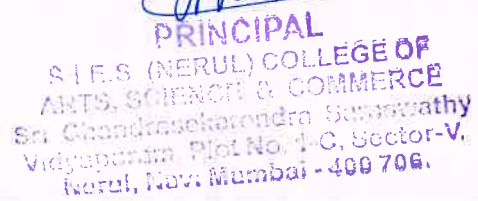 PRINCIPAL
S.I.E.S. (NERUL) COLLEGE OF
ARTS, SCIENCE & COMMERCE
Sri Chandrasekarendra Saraswathy
Vidyapuram, Plot No. 1-C, Sector-V,
Nerul, Navi Mumbai - 400 706.